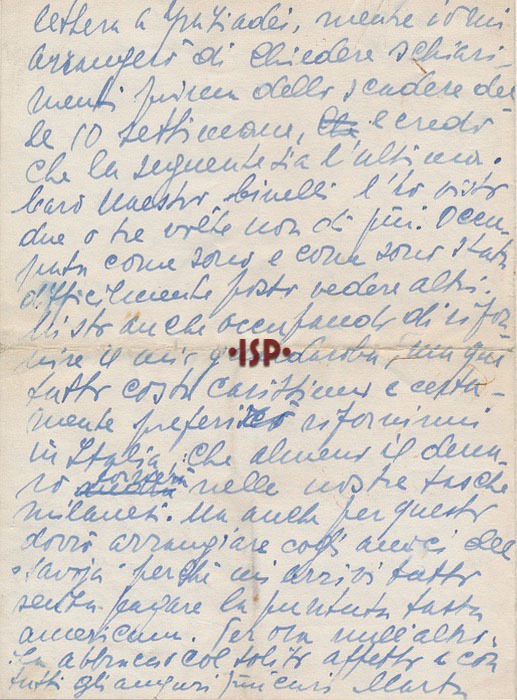 lettera a Graziadei, mentre io mi
arrangerò di chiedere schiari-
menti prima dello scadere del-
le 10 settimane, e credo
che la seguente sia l'ultima.
Caro Maestro, Binelli l'ho visto
due o tre volte non di più. Occu-
pata come sono e come sono stata
difficilmente posso vedere altri.
Mi sto anche occupando di rifor-
nire il mio guardaroba, ma qui
tutto costa carissimo e certa-
mente preferirò rifornirmi
in Italia, che almeno il dena-
ro resterà nelle nostre tasche
milanesi. Ma anche per questo
dovrò arrangiare cogli amici del
"Savoja" perchè mi arrivi tutto
senza pagare la puntuta tassa
americana. Per ora null'altro.
La abbraccio col solito affetto e con
tutti gli auguri più cari
•ISP•